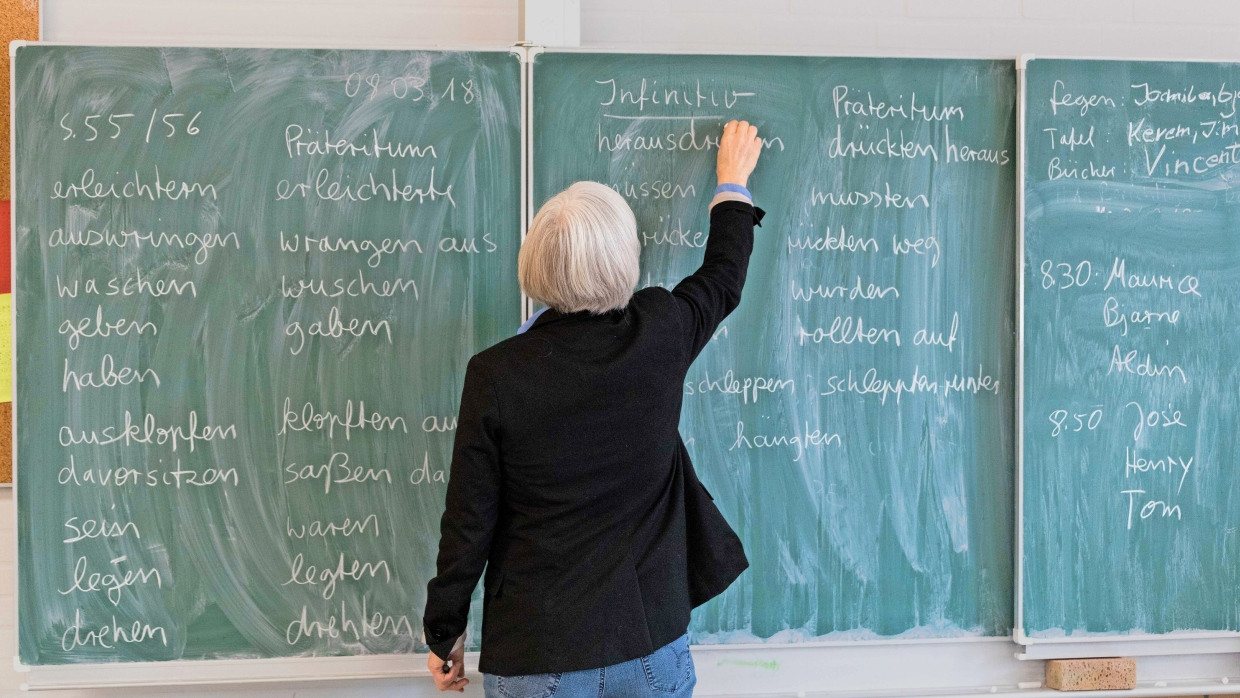 08.03.18
S.55/56
Präteritum
erleichtern erleichterte
auswringen wrangen aus
waschen wuschen
geben gaben
haben
ausklopfen klopften
davorsitzen saßen
sein waren
legen legten
drehen drehten
Infinitiv Präteritum
drückten heraus
mussten
weg
wurden
rollten auf
schleppen schleppten runter
hängten
fegen:
Tafel: Kerem, Jim
Bücher: Vincent
8.30. Maurice
Bjarne
Aldin
8.50 Jose
Henry
Tom